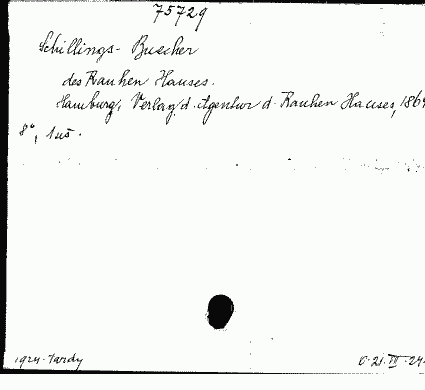 75729
Schillings-Buecher
des Rauhen Hauses.
Hamburg, Verlag d. Agentur d. Rauhen Hauses, 1869
8°, 1 uö.
1924. Tardy 0.21.IV.24.